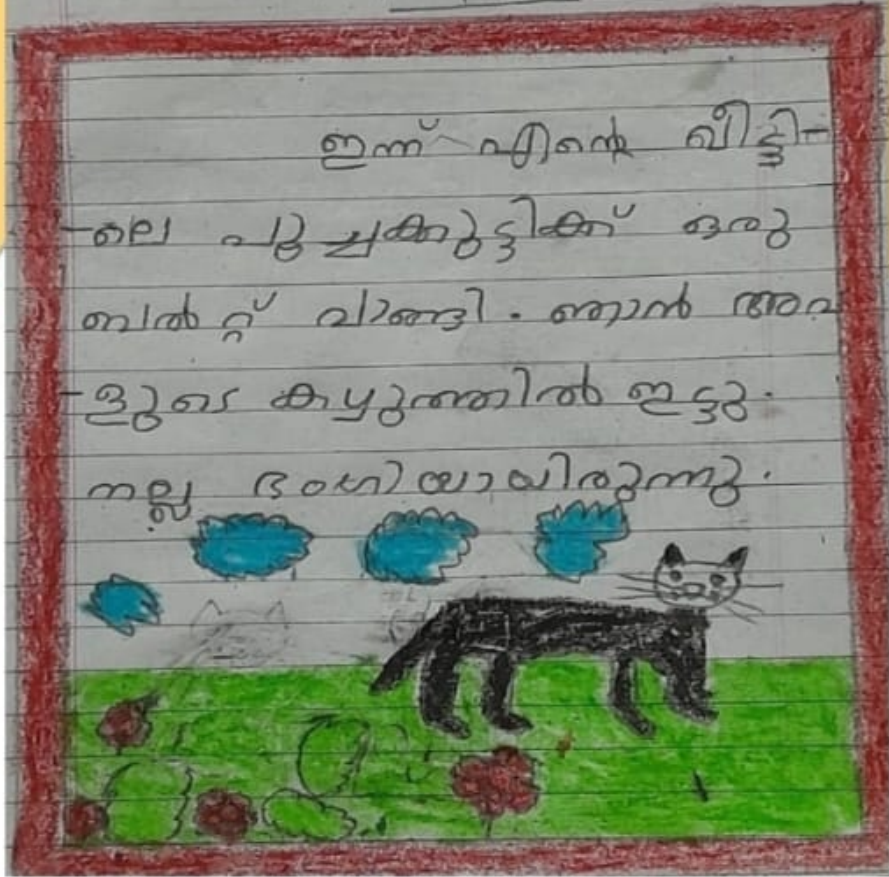 ഇന്ന് എന്റെ വീട്ടി-
-ലെ പൂച്ചക്കുട്ടിക്ക് ഒരു
ബൽറ്റ് വാങ്ങി. ഞാൻ അവ
-ളുടെ കഴുത്തിൽ ഇട്ടു.
നല്ല ഭംഗിയായിരുന്നു.